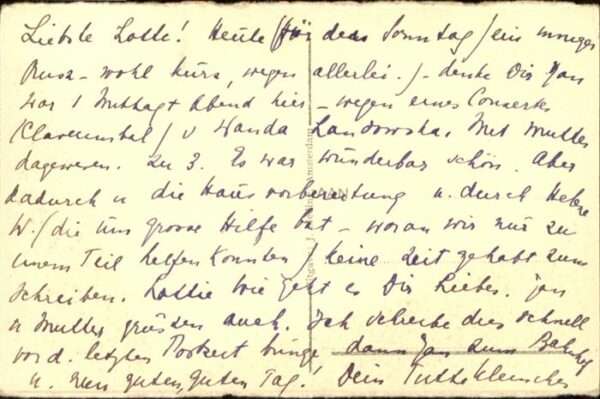 Liebste Lotte! Heute (für den Sonntag) ein inniger
Kuss – wohl kurz, wegen allerlei.) – denke Dir Jan
war 1 Mittag + Abend hier – wegen eines Concerts
(Clavecimbal) v Wanda Landowska. Mit Mutter
dagewesen. Zu 3. Es war wunderbar schön. Aber
dadurch u die Hausvorbereitung u. durch
W. (die uns grosse Hilfe bat – woran wir nur zu
einem Teil helfen konnten) keine Zeit gehabt zum
Schreiben. Lottie wie geht es Dir Liebes. Jan
u Mutter grüssen auch. Ich schreibe dies schnell
vor d. letzten Postzeit bringe dann Jan zum Bahnhof
u. nun guten, guten Tag! Dein